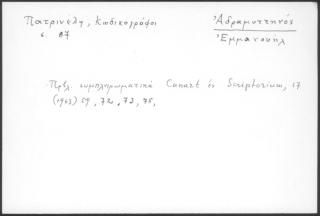 Πατρινέλη, Κωδικογράφοι
σ. 87
Ἀδραμυττηνός
Ἐμμανουήλ
Πρβλ. συμπληρωματικά Canart ἐν Scriptorium, 17
(1963) 59, 72, 73, 75,